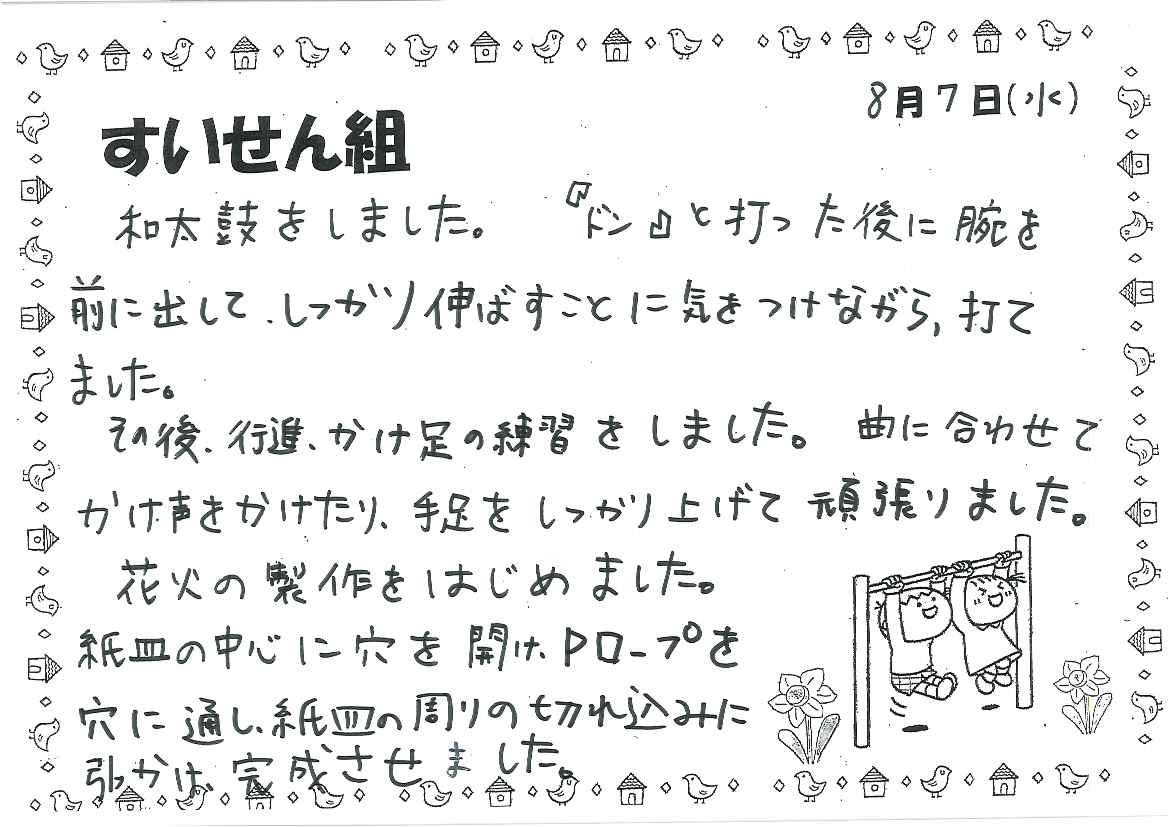 8月7日(水)
すいせん組
和太鼓をしました。 『ドン』と打った後に腕を
前に出して、しっかり伸ばすことに気をつけながら、打て
ました。
その後、行進、かけ足の練習をしました。 曲に合わせて
かけ声をかけたり、手足をしっかり上げて頑張りました。
花火の製作をはじめました。
紙皿の中心に穴を開け、Pロープを
穴に通し、紙皿の周りの切れ込みに
引かけ、完成させました。